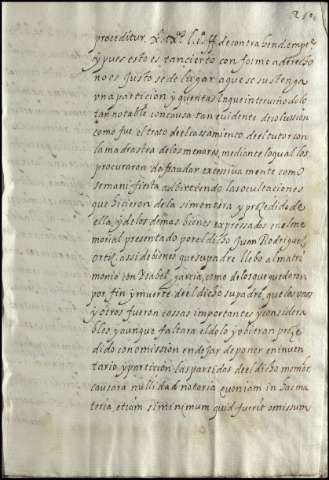 proceditur. l. 1. ff. de contrahend. empt.
y pues esto es tan cierto conforme a derecho
no es Justo se de lugar a que se sustenga
vna particion y quentas en que interuino dolo
tan notable con causa tan euidente de colussion
como fue el trato del casamiento del tutor con
la madrastra de los menores, mediante lo qual los
procuraron defraudar excessiuamente como
se manifiesta aduirtiendo las ocultaciones
que hicieron de la simentera y procedido de
ella, y de los demas bienes expressados en el me
morial presentado por el dicho Juan Rodriguez
ortiz, assi de bienes que su padre llebo al matri
monio con Ysabel garcia, como de los que quedaron
por fin y muerte del dicho su padre, que los vnos
y otros fueron cossas importantes y considera
bles, y aunque faltara el dolo y obieran proce
dido con omission en dejar de poner en inuen
tario, y particion las partidas del dicho memorial
causara nullidad notoria quoniam in hac ma
teria, etiam si minimum quid fuerit omissum